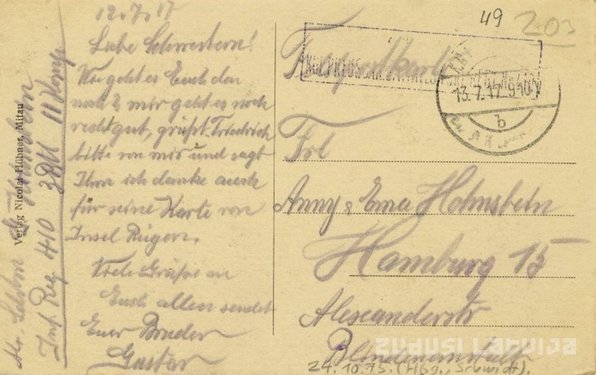 12.7.17
Liebe Schwestern!
Wie geht es Euch den
noch? mir geht es noch
recht gut, grüßt Friedrich
bitte von mir und sagt
Ihm ich danke auch
für seine Karte von
Insel Rügen.
Viele Grüße an
Euch allen sendet
Euer Bruder
Gustav
Inf. Reg. 410 3 Batl 11 Komp
Verlag Nicolai Hübner, Mitau
49
203
Feldpostkarte
13.7.17. 9-10
b
Frl
Anny & Ema Hohnsbein
Hamburg 15
Alexanderstr
Blindenanstalt
24.10.75. (Hbg., Schmidt).
ZUDUSI LATVIJA